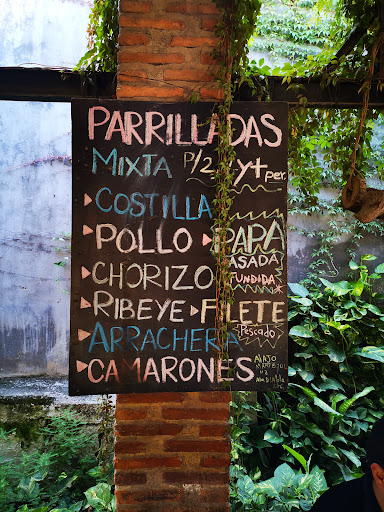 PARRILLADAS
MIXTA P/2, 4 y + per.
COSTILLA
POLLO PAPA
ASADA
CHORIZO FUNDIDA
RIBEYE FILETE
Pescado
ARRACHERA
CAMARONES
AL AJO